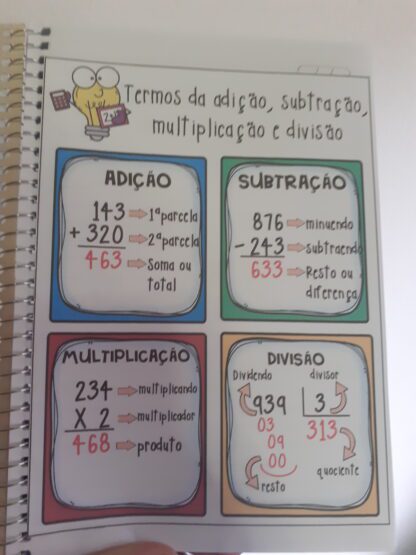 Termos da adição, subtração,
multiplicação e divisão
ADIÇÃO
143 1ª parcela
+ 320 2ª parcela
463 Soma ou
total
SUBTRAÇÃO
876 minuendo
- 243 subtraendo
633 Resto ou
diferença
MULTIPLICAÇÃO
234 multiplicando
X 2 multiplicador
468 produto
DIVISÃO
Dividendo divisor
939 3
03 313
09
00
quociente
resto